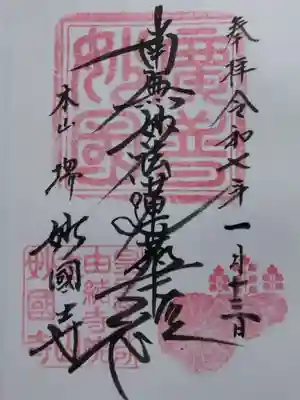 奉拝 令和七年 一月十三日
南無妙法蓮華経
本山 堺 妙國寺
廣普
妙國
由緒寺院
妙國寺